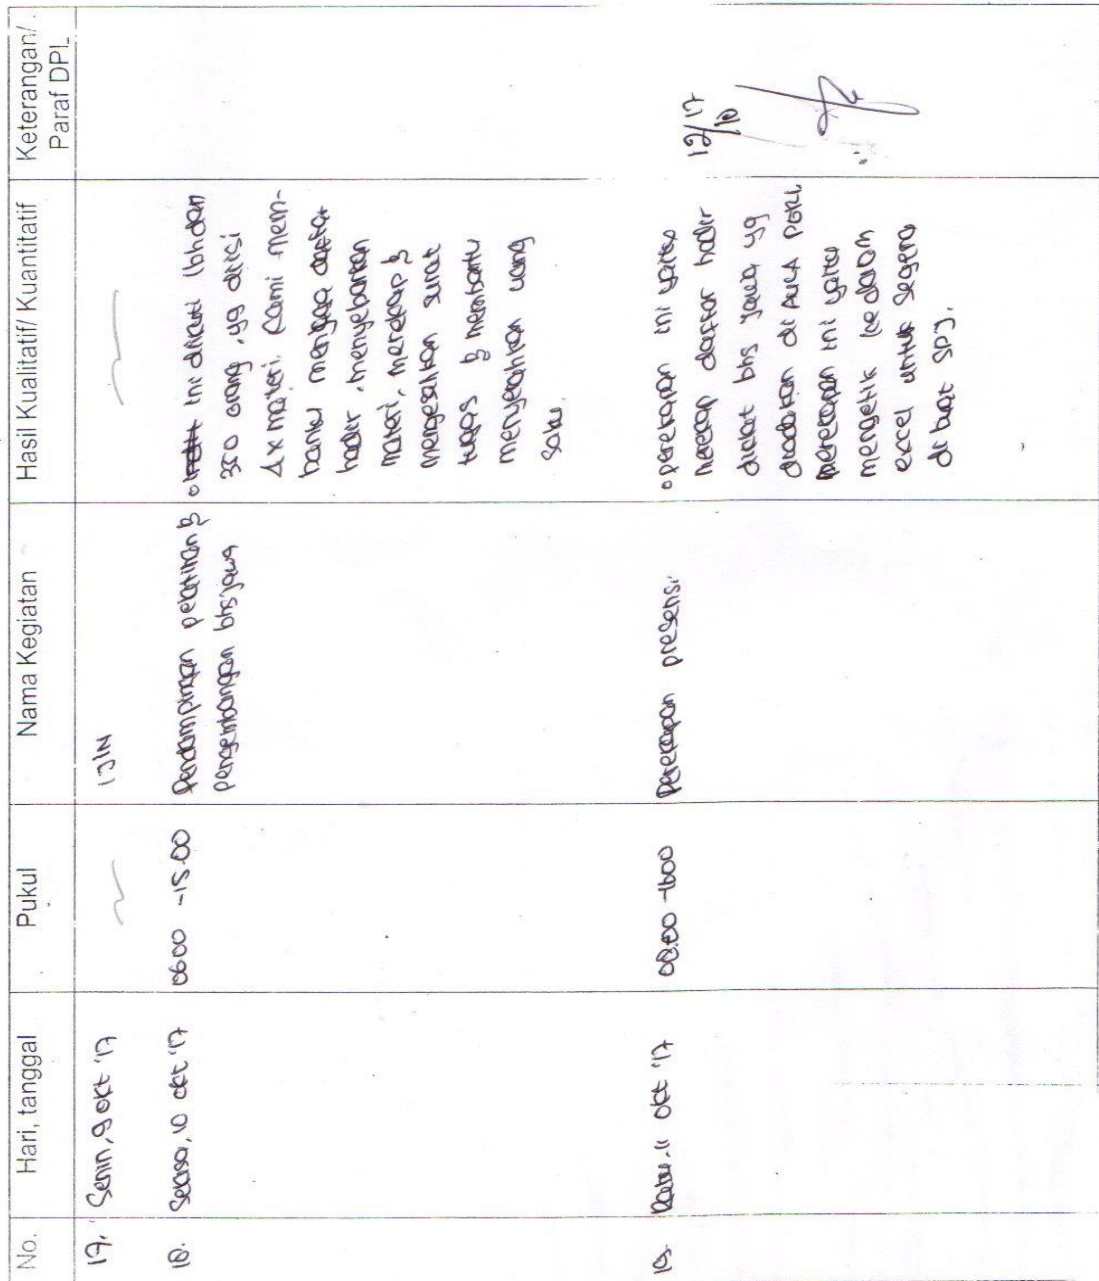 No. Hari, tanggal Pukul Nama Kegiatan Hasil Kualitatif/ Kuantitatif Keterangan/
Paraf DPL
17. Senin, 9 okt '17 IJIN
18. Selasa, 10 okt '17 0600 - 15.00 Pendampingan pelatihan &
pengembangan bhs jawa
ini diikuti lbh dari
350 orang, yg diisi
4x materi. Kami mem-
bantu menjaga daftar
hadir, menyebarkan
materi, merekap &
mengesahkan surat
tugas & membantu
menyerahkan uang
saku.
19. Rabu, 11 okt '17 08.00 - 1600 Perekapan presensi
perekapan ini yaitu
merekap daftar hadir
diklat bhs jawa yg
diadakan di AULA PGRI.
perekapan ini yaitu
mengetik ke dalam
excel untuk segera
di buat SPJ.
12/10 17